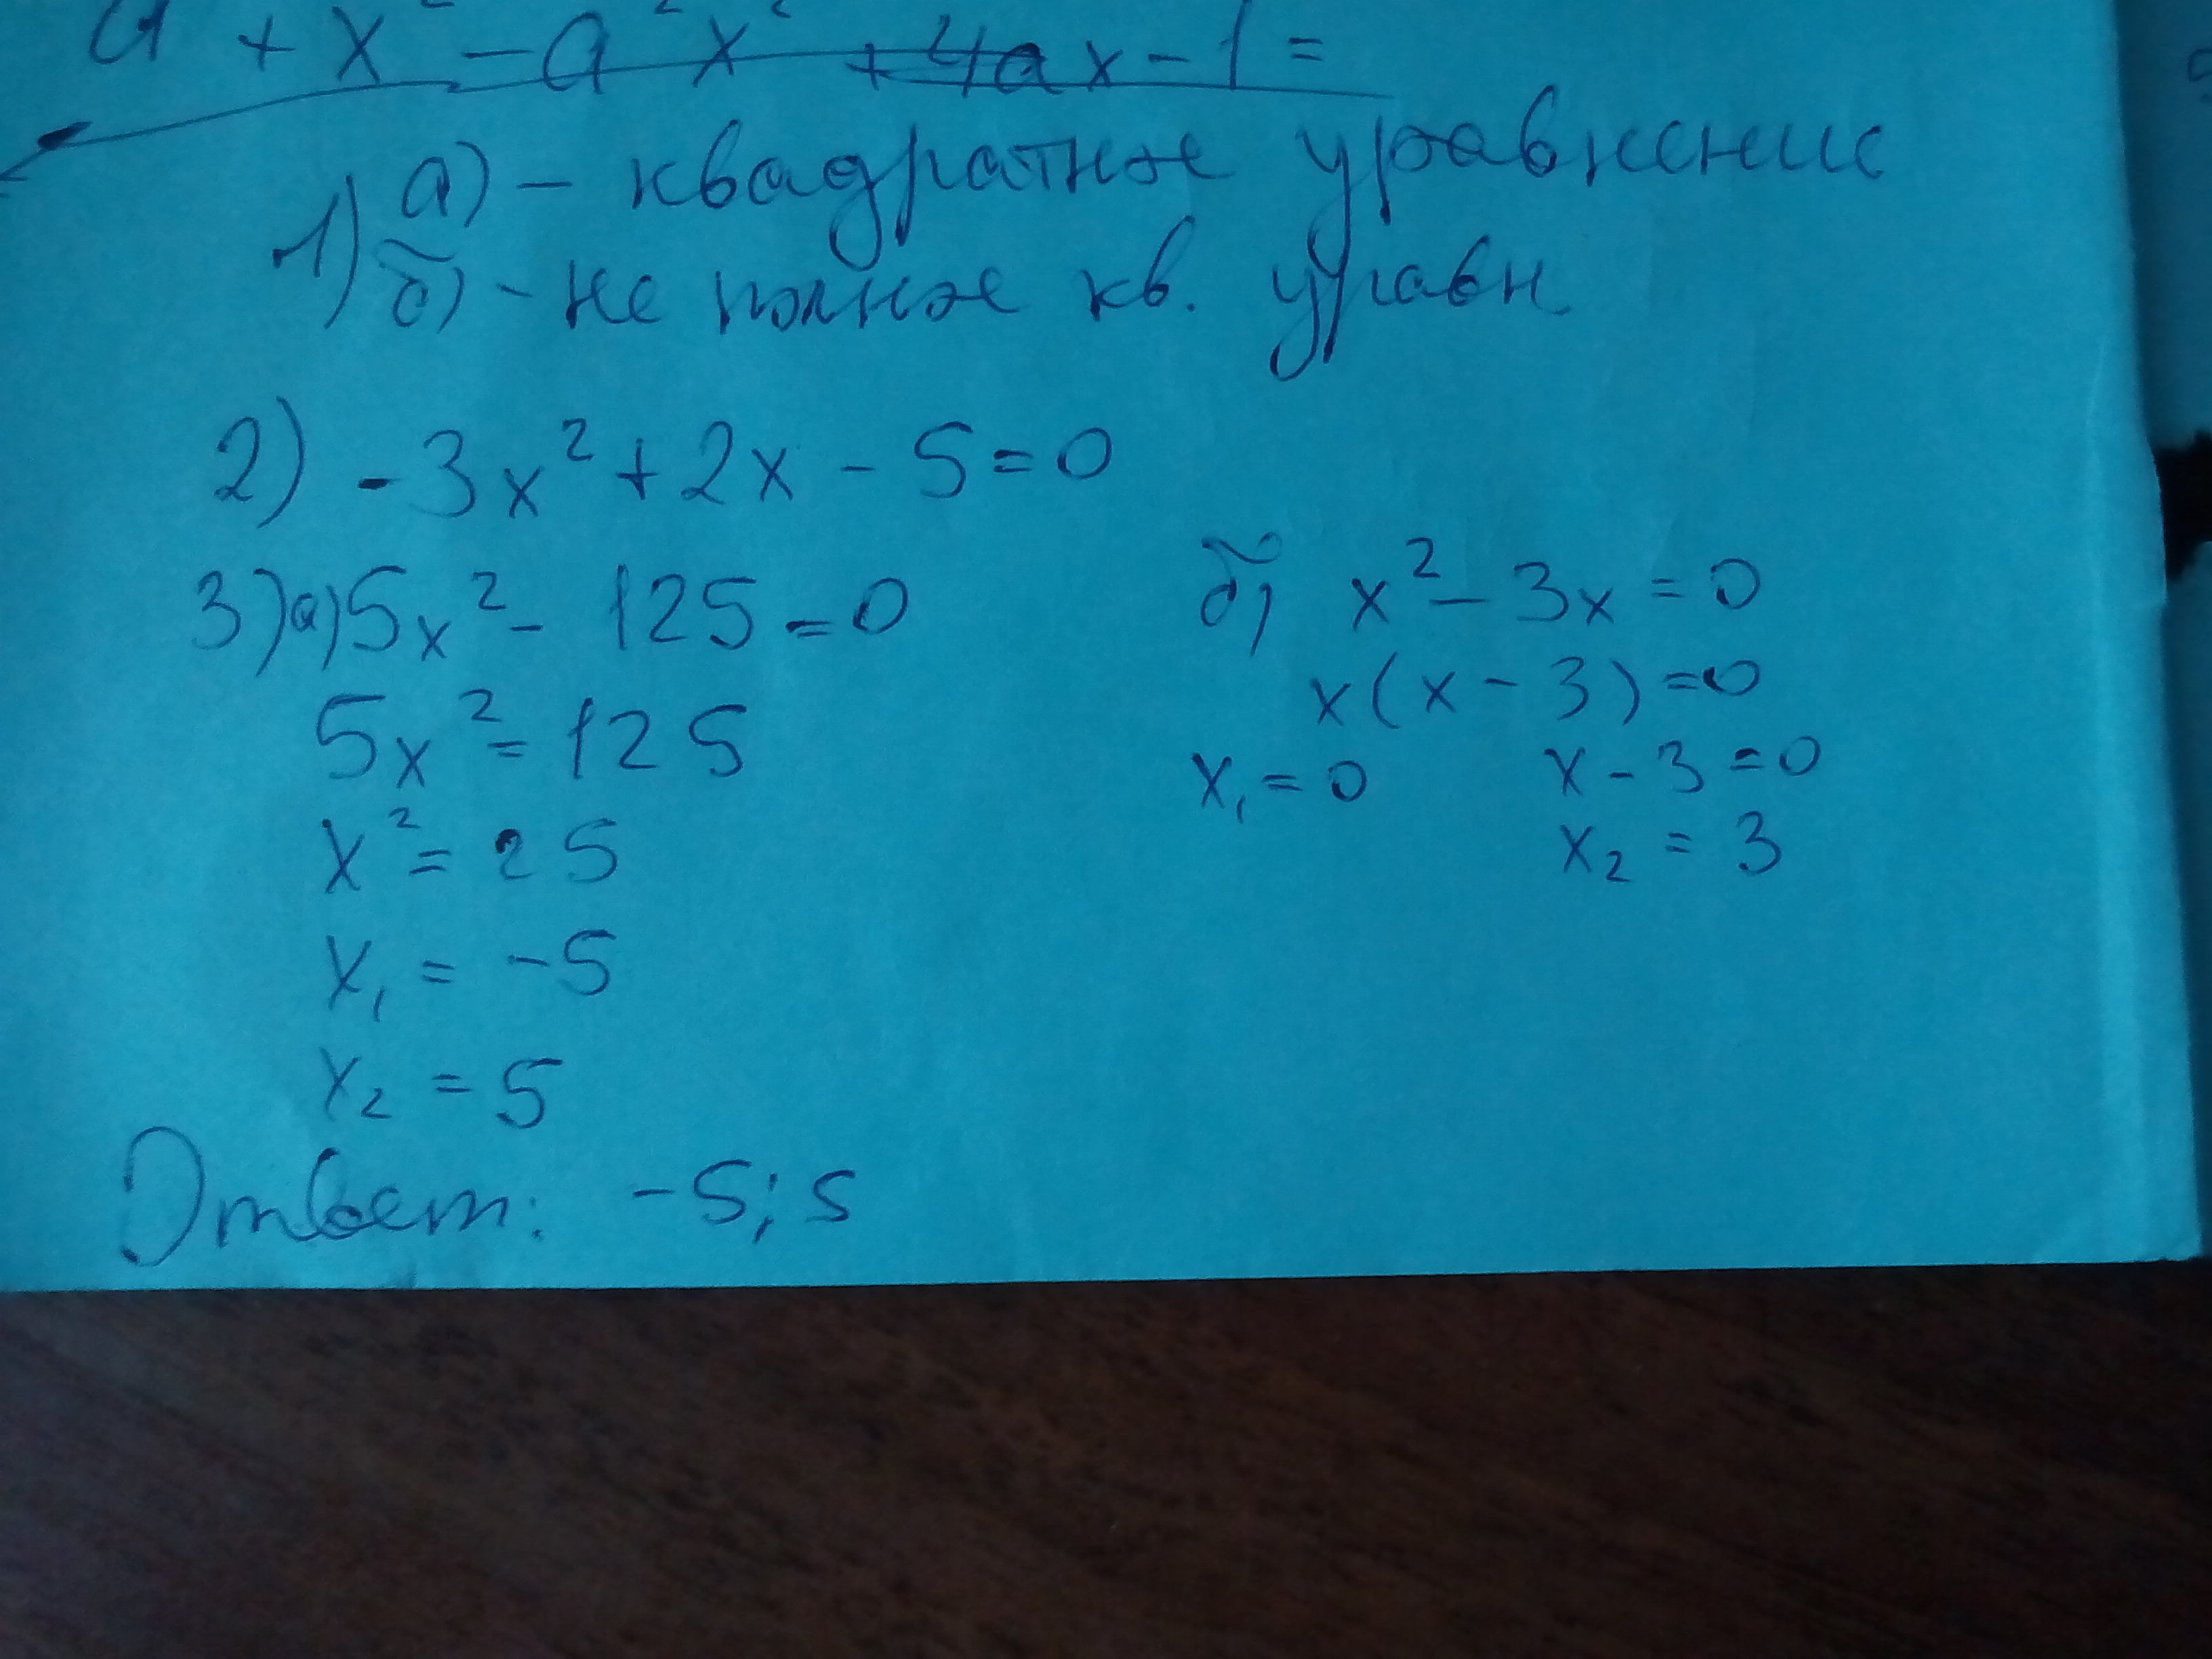 a + x² - a²x² + 4ax - 1 =
1) а) - квадратное уравнение
б) - не полное кв. уравн
2) -3x² + 2x - 5 = 0
3) а) 5x² - 125 = 0
5x² = 125
x² = 25
x₁ = -5
x₂ = 5
Ответ: -5; 5
б) x² - 3x = 0
x(x - 3) = 0
x₁ = 0 x - 3 = 0
x₂ = 3